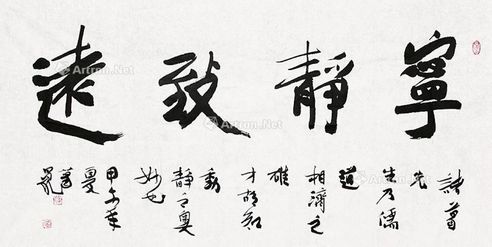 寧靜致遠
諸葛
先
生乃儒
道
相濟之
雄
才故知
動
靜之奧
妙也
甲午年
夏
Artron.Net
Artron.Net
Artron.Net